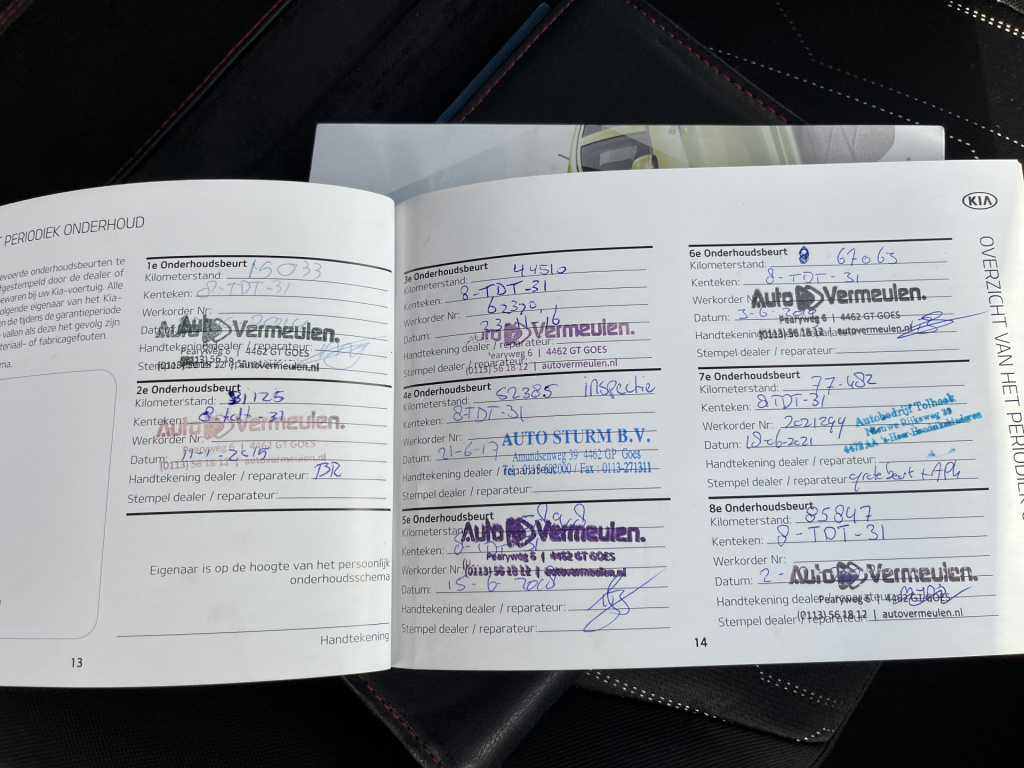 T PERIODIEK ONDERHOUD
evoerde onderhoudsbeurten te
fgestempeld door de dealer of
ewaren bij uw Kia-voertuig. Alle
olgende eigenaar van het Kia-
en die tijdens de garantieperiode
vallen als deze het gevolg zijn
teriaal- of fabricagefouten.
ma.
1e Onderhoudsbeurt
Kilometerstand: 15033
Kenteken: 8-TDT-31
Werkorder Nr:
Auto Vermeulen.
Handtekening
Pearyweg 6 | 4462 GT GOES
(0113) 56 18 12 | autovermeulen.nl
2e Onderhoudsbeurt
Kilometerstand: 31125
Kenteken: 8-tdt-31
Auto Vermeulen.
Werkorder Nr
Pearyweg 6 | 4462 GT GOES
Datum: 2015
(0113) 56 18 12 | autovermeulen.nl
Handtekening dealer / reparateur: BR
Stempel dealer / reparateur:
Eigenaar is op de hoogte van het persoonlijk
onderhoudsschema
Handtekening
13
3e Onderhoudsbeurt
Kilometerstand: 44510
Kenteken: 8-TDT-31
Werkorder Nr: 62320
Datum:
Auto Vermeulen.
Handtekening dealer
Pearyweg 6 | 4462 GT GOES
Stempel dealer / reparateur
(0113) 56 18 12 | autovermeulen.nl
4e Onderhoudsbeurt
Kilometerstand: 52385 inspectie
Kenteken: 8-TDT-31
Werkorder Nr:
AUTO STURM B.V.
Datum: 21-6-17
Amundsenweg 39 4462 GP Goes
Handtekening dealer / reparateur
Tel.: 0113-602000 / Fax : 0113-271311
Stempel dealer / reparateur:
5e Onderhoudsbeurt
Kilometerstand
Auto Vermeulen.
Kenteken: 8-TDT-31
Pearyweg 6 | 4462 GT GOES
Werkorder Nr
(0113) 56 18 12 | autovermeulen.nl
Datum: 15-6-2018
Handtekening dealer / reparateur:
Stempel dealer / reparateur:
KIA
OVERZICHT VAN HET PERIODIEK
6e Onderhoudsbeurt
Kilometerstand: 67065
Kenteken: 8-TDT-31
Werkorder Nr
Auto Vermeulen.
Datum: 3-6-
Pearyweg 6 | 4462 GT GOES
Handtekening
(0113) 56 18 12 | autovermeulen.nl
Stempel dealer / reparateur:
7e Onderhoudsbeurt
Kilometerstand: 77-482
Kenteken: 8-TDT-31
Werkorder Nr: 2021299
Autobedrijf Tolhoek
Nieuwe Rijksweg 39
Datum: 18-6-2021
Handtekening dealer / reparateur:
Stempel dealer / reparateur: grote beurt + APK
8e Onderhoudsbeurt
Kilometerstand: 85847
Kenteken: 8-TDT-31
Werkorder Nr:
Auto Vermeulen.
Datum: 2-
Pearyweg 6 | 4462 GT GOES
Handtekening dealer / reparateur
(0113) 56 18 12 | autovermeulen.nl
Stempel dealer / reparateur:
14